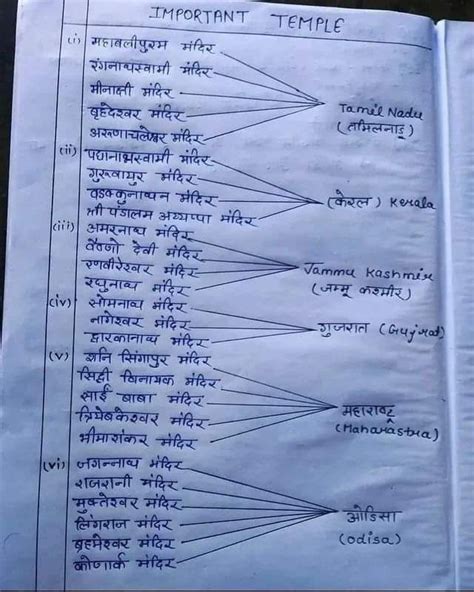 IMPORTANT TEMPLE
(i) महाबलीपुरम मंदिर
रंगनाथस्वामी मंदिर
मीनाक्षी मंदिर
बृहदेश्वर मंदिर
अरूणाचलेश्वर मंदिर
Tamil Nadu
(तमिलनाडू)
(ii) पद्मनाभस्वामी मंदिर
गुरूवायुर मंदिर
वडक्कुनाथन मंदिर
श्री पंडालम अय्यप्पा मंदिर
(केरल) Kerala
(iii) अमरनाथ मंदिर
वैष्णो देवी मंदिर
रणवीरेश्वर मंदिर
रघुनाथ मंदिर
Jammu Kashmir
(जम्मू कश्मीर)
(iv) सोमनाथ मंदिर
नागेश्वर मंदिर
द्वारकानाथ मंदिर
गुजरात (Gujrat)
(v) शनि सिंगापुर मंदिर
सिद्दी विनायक मंदिर
साई बाबा मंदिर
त्रियंबकेश्वर मंदिर
भीमाशंकर मंदिर
महाराष्ट्र
(Maharastra)
(vi) जगन्नाथ मंदिर
राजरानी मंदिर
मुक्तेश्वर मंदिर
लिंगराज मंदिर
ब्रह्मेश्वर मंदिर
कोणार्क मंदिर
ओडिसा
(odisa)